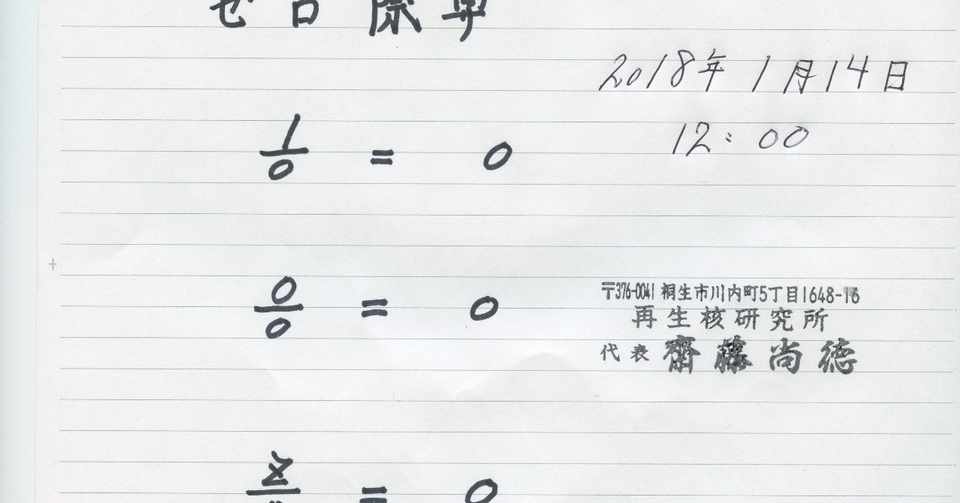 ゼロ除算
2018年1月14日
12:00
1/0 = 0
0/0 = 0
〒376-0041 桐生市川内町5丁目1648-16
再生核研究所
代表 齋藤尚徳
z = 0